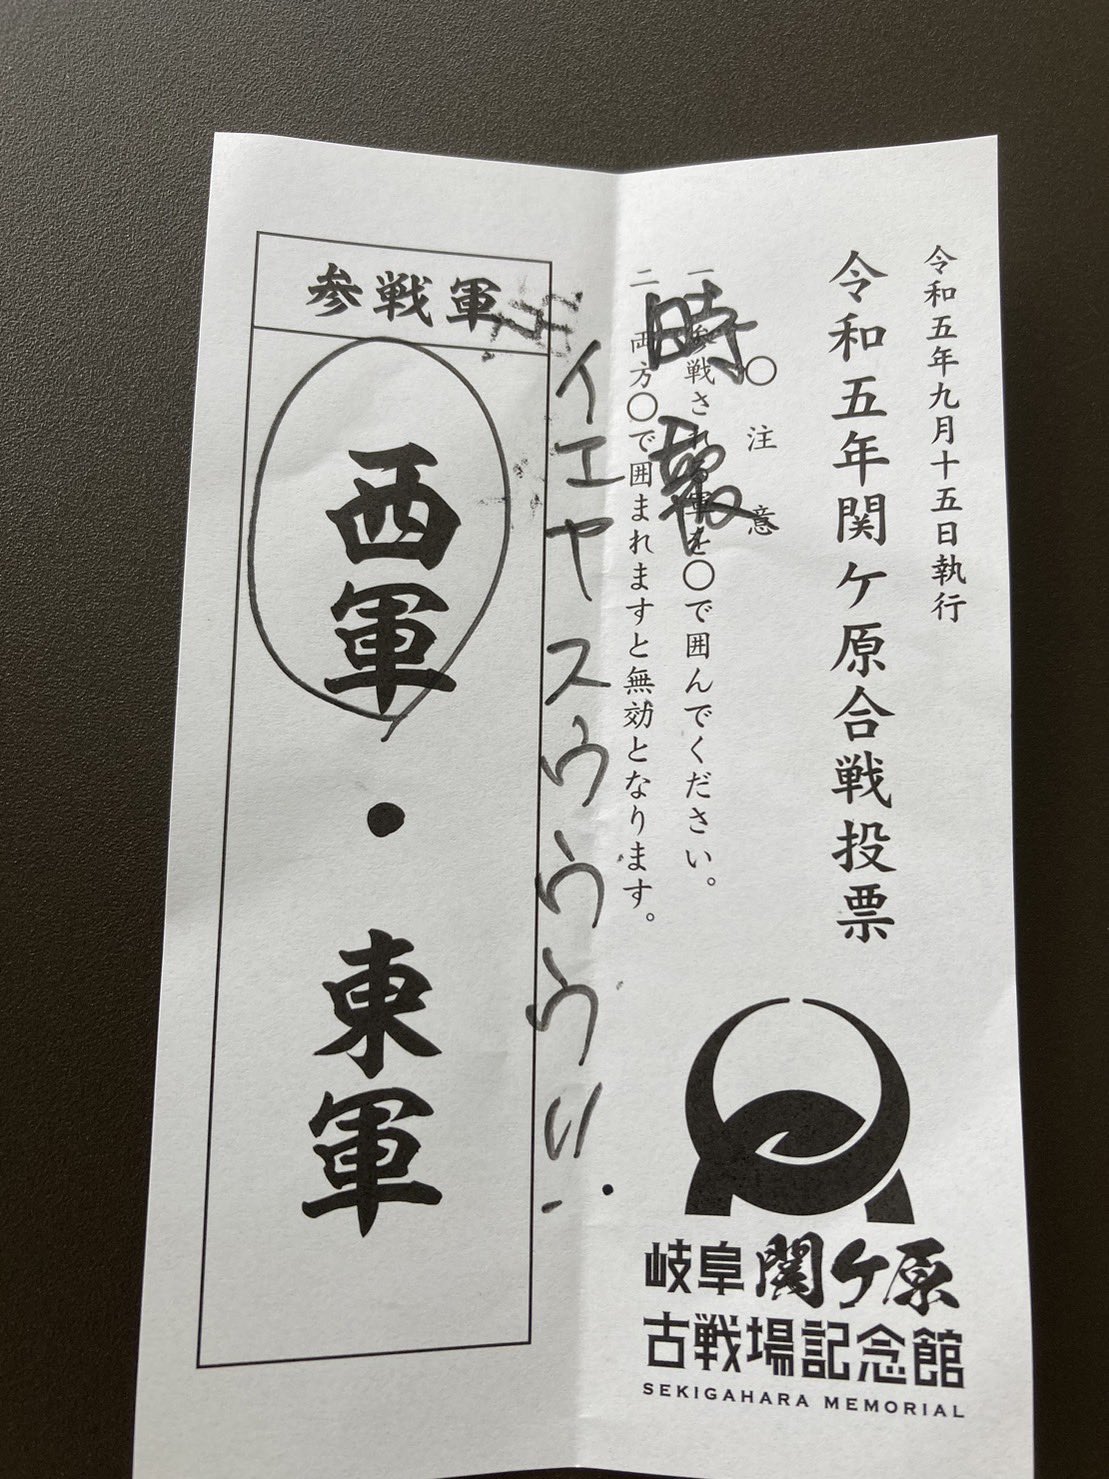 令和五年九月十五日執行
令和五年関ケ原合戦投票
〇注意
一 参戦される軍を〇で囲んでください。
二 両方〇で囲まれますと無効となります。
時報
イエヤスウウウ!!
参戦軍
西軍・東軍
岐阜関ケ原
古戦場記念館
SEKIGAHARA MEMORIAL